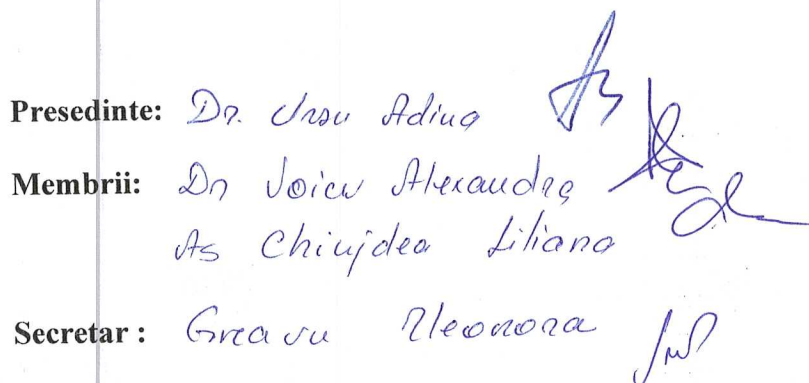 Presedinte: Dr. Ursu Adina
Membrii: Dr Voicu Alexandra
As Chiujdea Liliana
Secretar : Greavu Eleonora